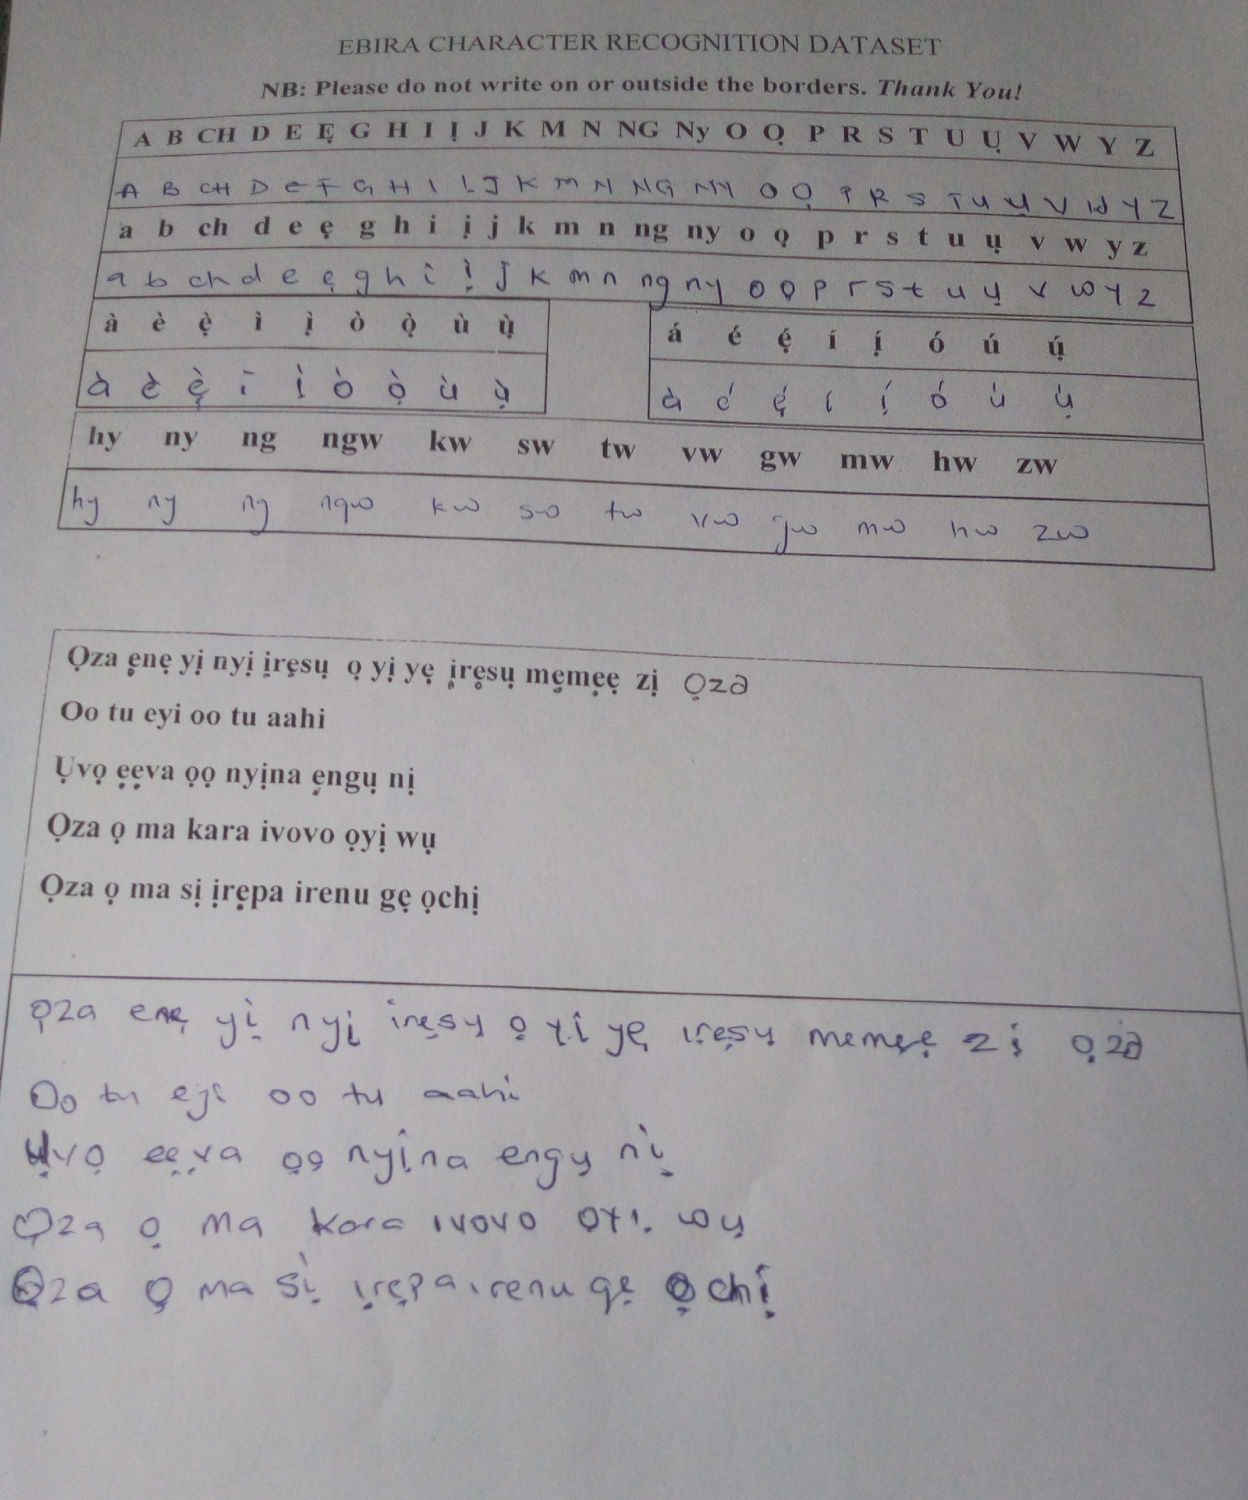 EBIRA CHARACTER RECOGNITION DATASET
NB: Please do not write on or outside the borders. Thank You!
A B CH D E Ẹ G H I Ị J K M N NG Ny O Ọ P R S T U Ụ V W Y Z
A B CH D E Ẹ G H I Ị J K M N NG NY O Ọ P R S T U Ụ V W Y Z
a b ch d e ẹ g h i ị j k m n ng ny o ọ p r s t u ụ v w y z
a b ch d e ẹ g h i ị j k m n ng ny o ọ p r s t u ụ v w y z
à è ẹ̀ ì ị̀ ò ọ̀ ù ụ̀ á é ẹ́ í ị́ ó ú ụ́
à è ẹ̀ ì ị̀ ò ọ̀ ù ụ̀ à é ẹ́ í ị́ ó ú ụ́
hy ny ng ngw kw sw tw vw gw mw hw zw
hy ny ng ngw kw sw tw vw gw mw hw zw
Ọza ẹnẹ yị nyị ịrẹsụ ọ yị yẹ ịrẹsụ mẹmẹẹ zị Ọza
Oo tu eyi oo tu aahi
Ụvọ ẹẹva ọọ nyịna ẹngụ nị
Ọza ọ ma kara ivovo ọyị wụ
Ọza ọ ma sị ịrẹpa irenu gẹ ọchị
Ọza enẹ yị nyị irẹsụ ọ yị yẹ ịrẹsụ memẹẹ zị ọza
Oo tu eyi oo tu aahi
Ụvọ ẹẹva ọọ nyịna engụ nị
Ọza ọ ma kara ivovo oyi wụ
Ọza ọ ma sị ịrẹpa irenu gẹ ọchị